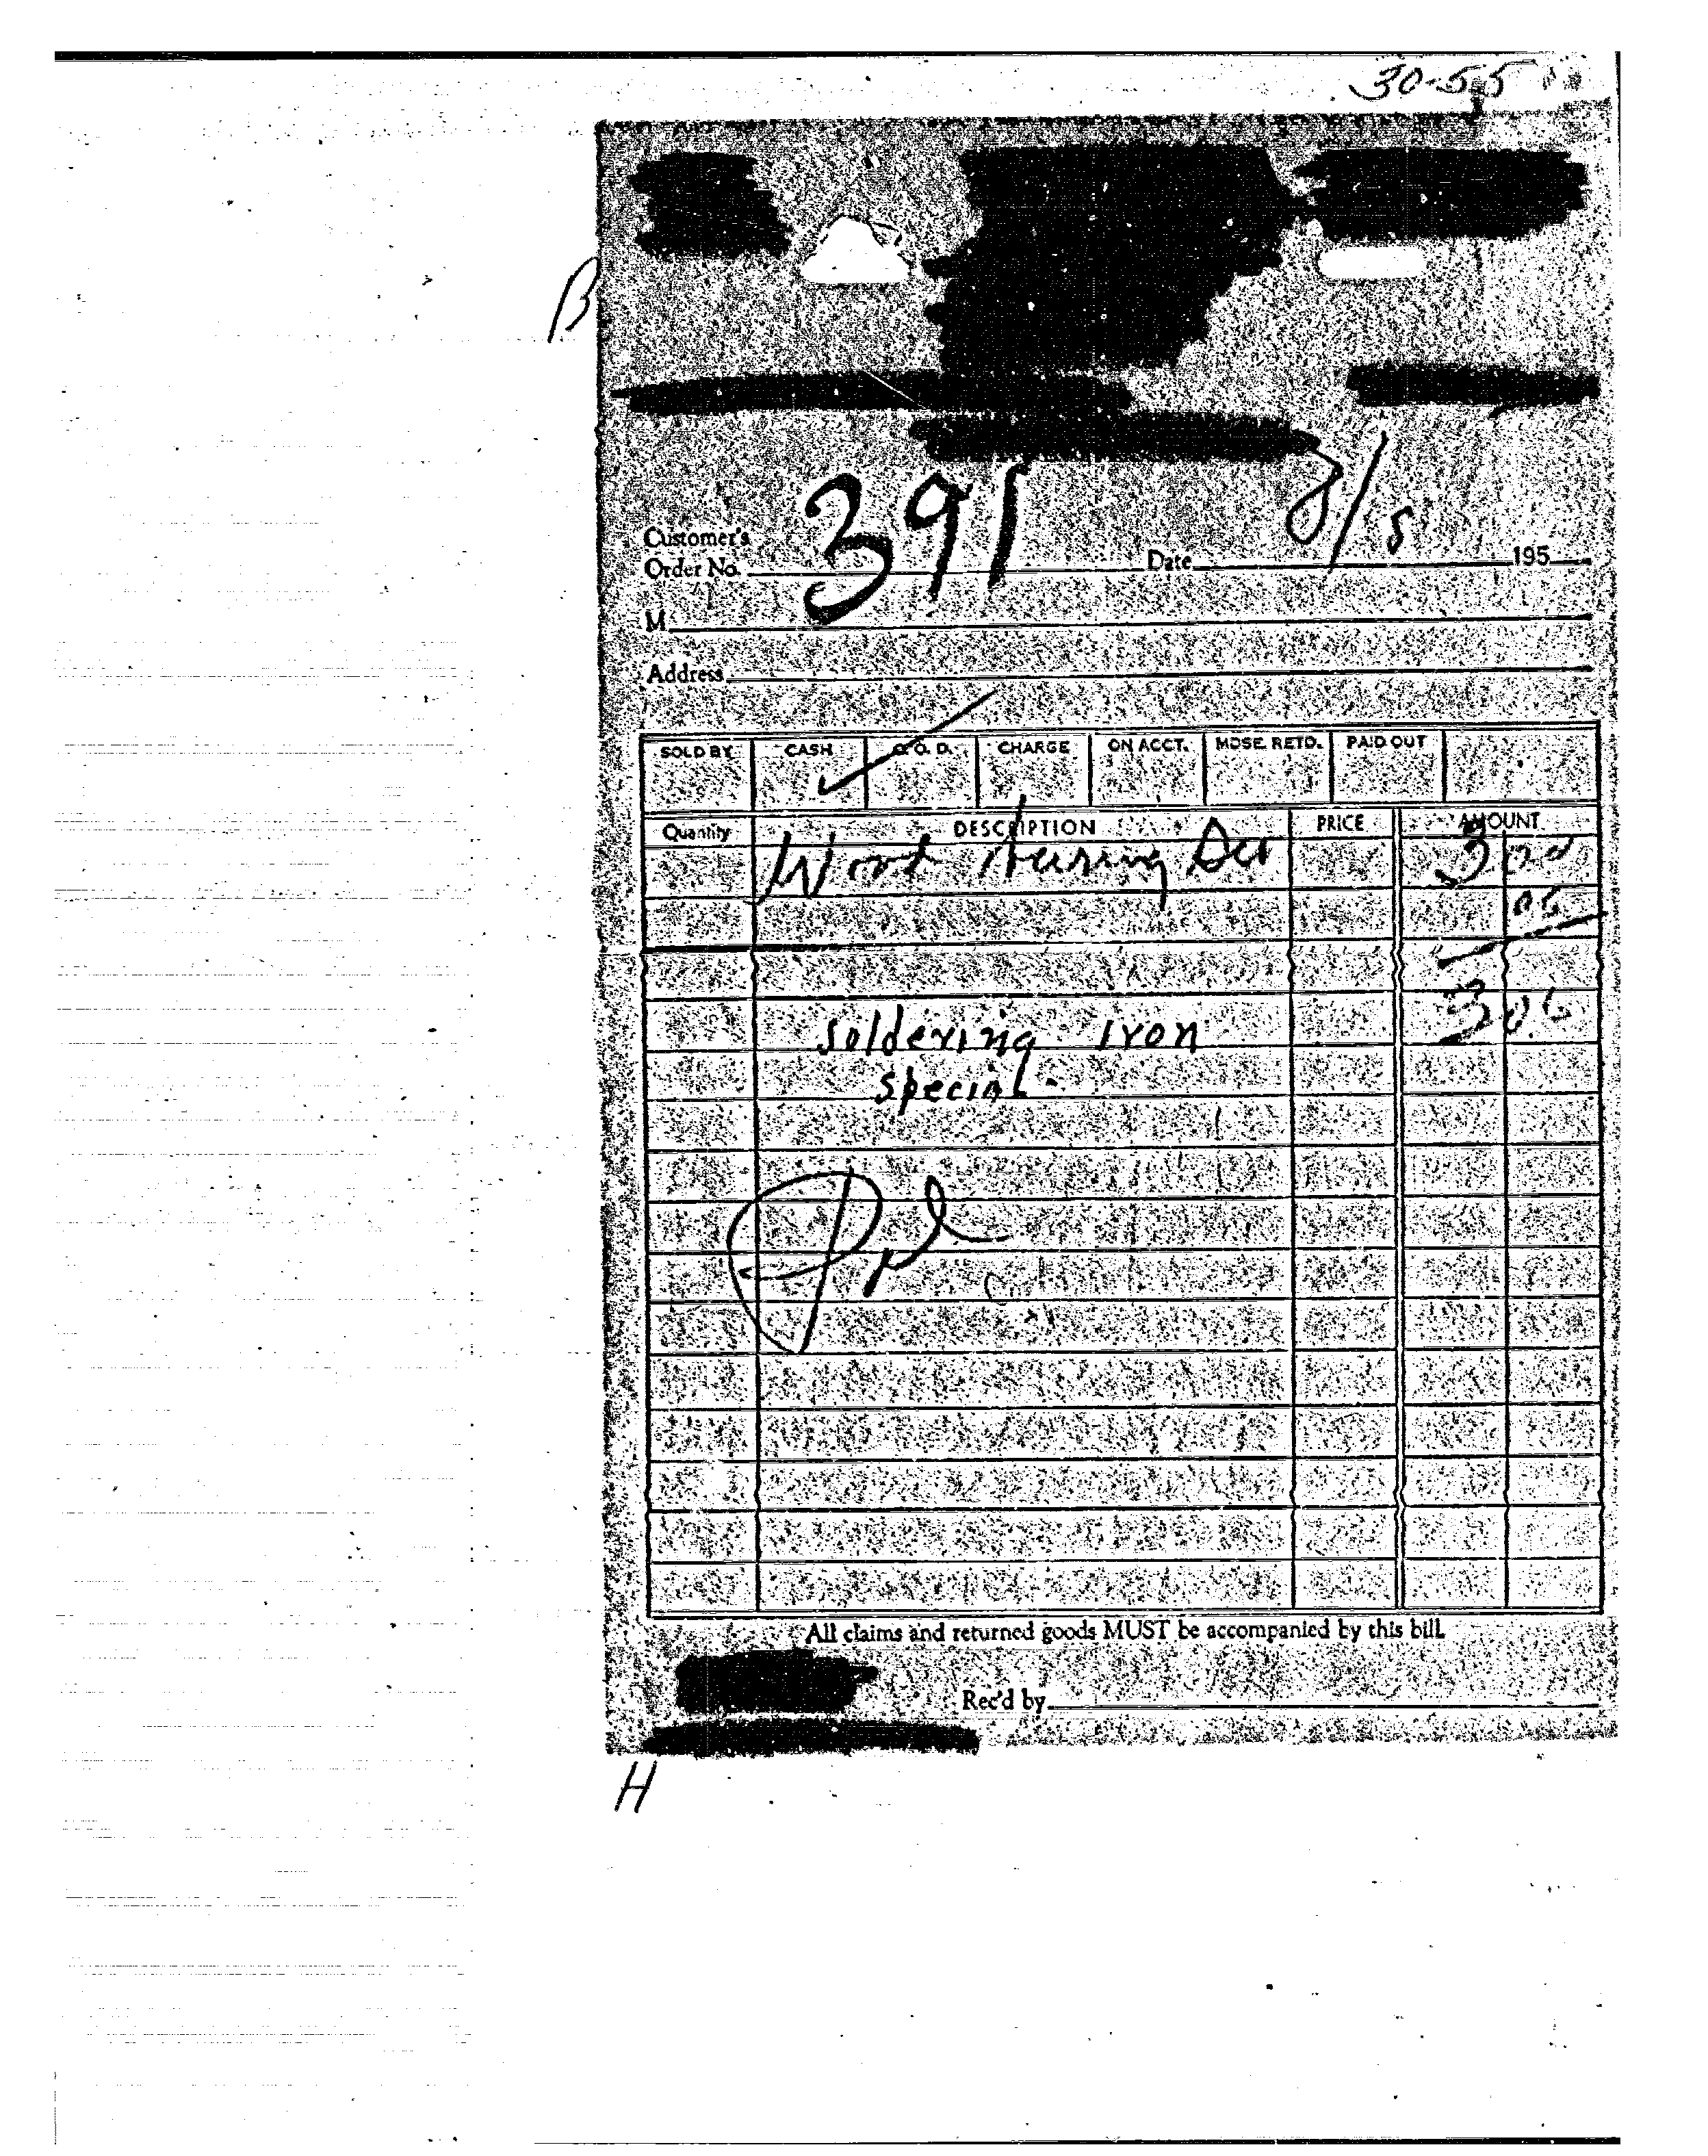 30-55
B
391
8/5
Customer's
Order No. Date 195
M
Address
SOLD BY CASH C. O. D. CHARGE ON ACCT. MDSE. RETD. PAID OUT
Quantity DESCRIPTION PRICE AMOUNT
Wood Burning Set 3 00
06
3 06
soldering iron
special.
All claims and returned goods MUST be accompanied by this bill.
Rec'd by
H